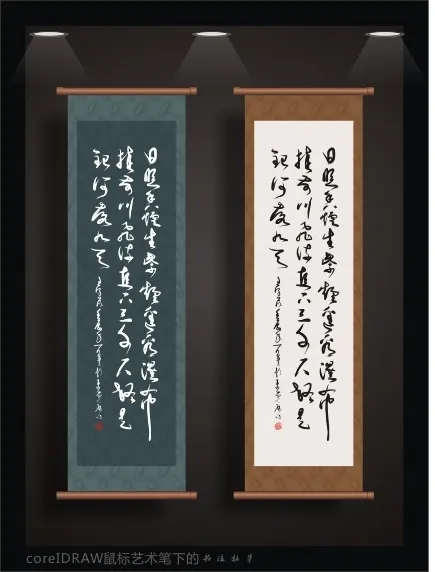 日照香爐生紫煙遙看瀑布
挂前川飛流直下三千尺疑是
銀河落九天
日照香爐生紫煙遙看瀑布
挂前川飛流直下三千尺疑是
銀河落九天
coreIDRAW鼠标艺术笔下的书法